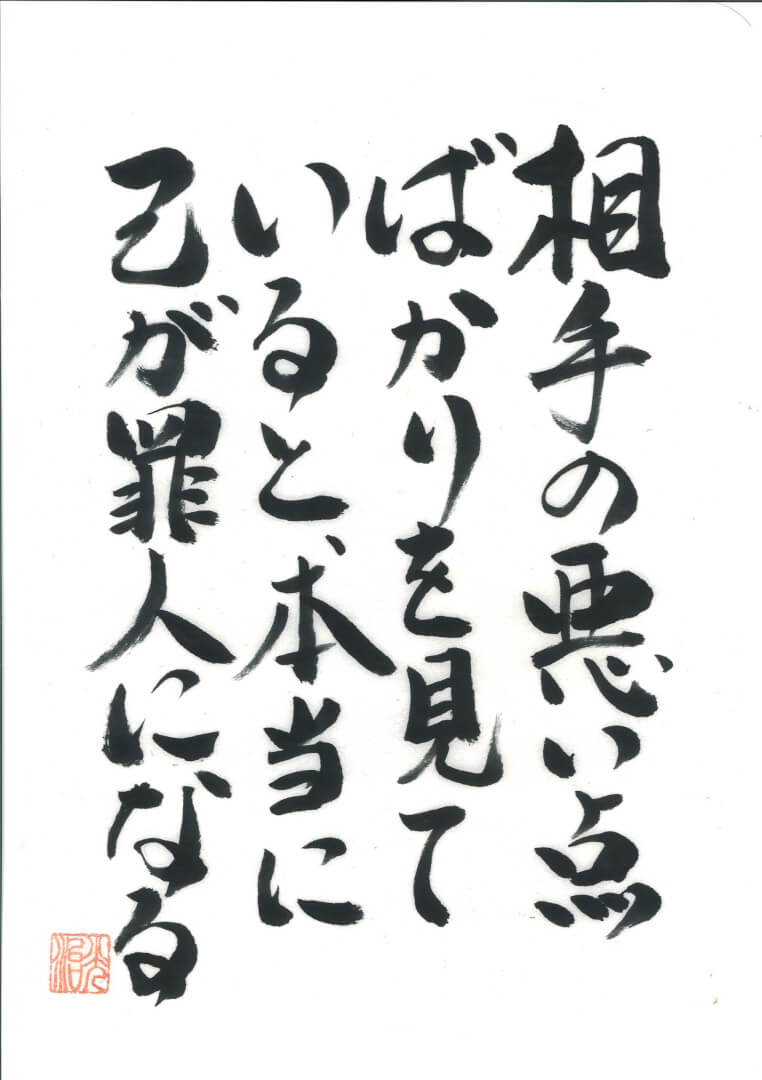 相手の悪い点
ばかりを見て
いると、本当に
己が罪人になる